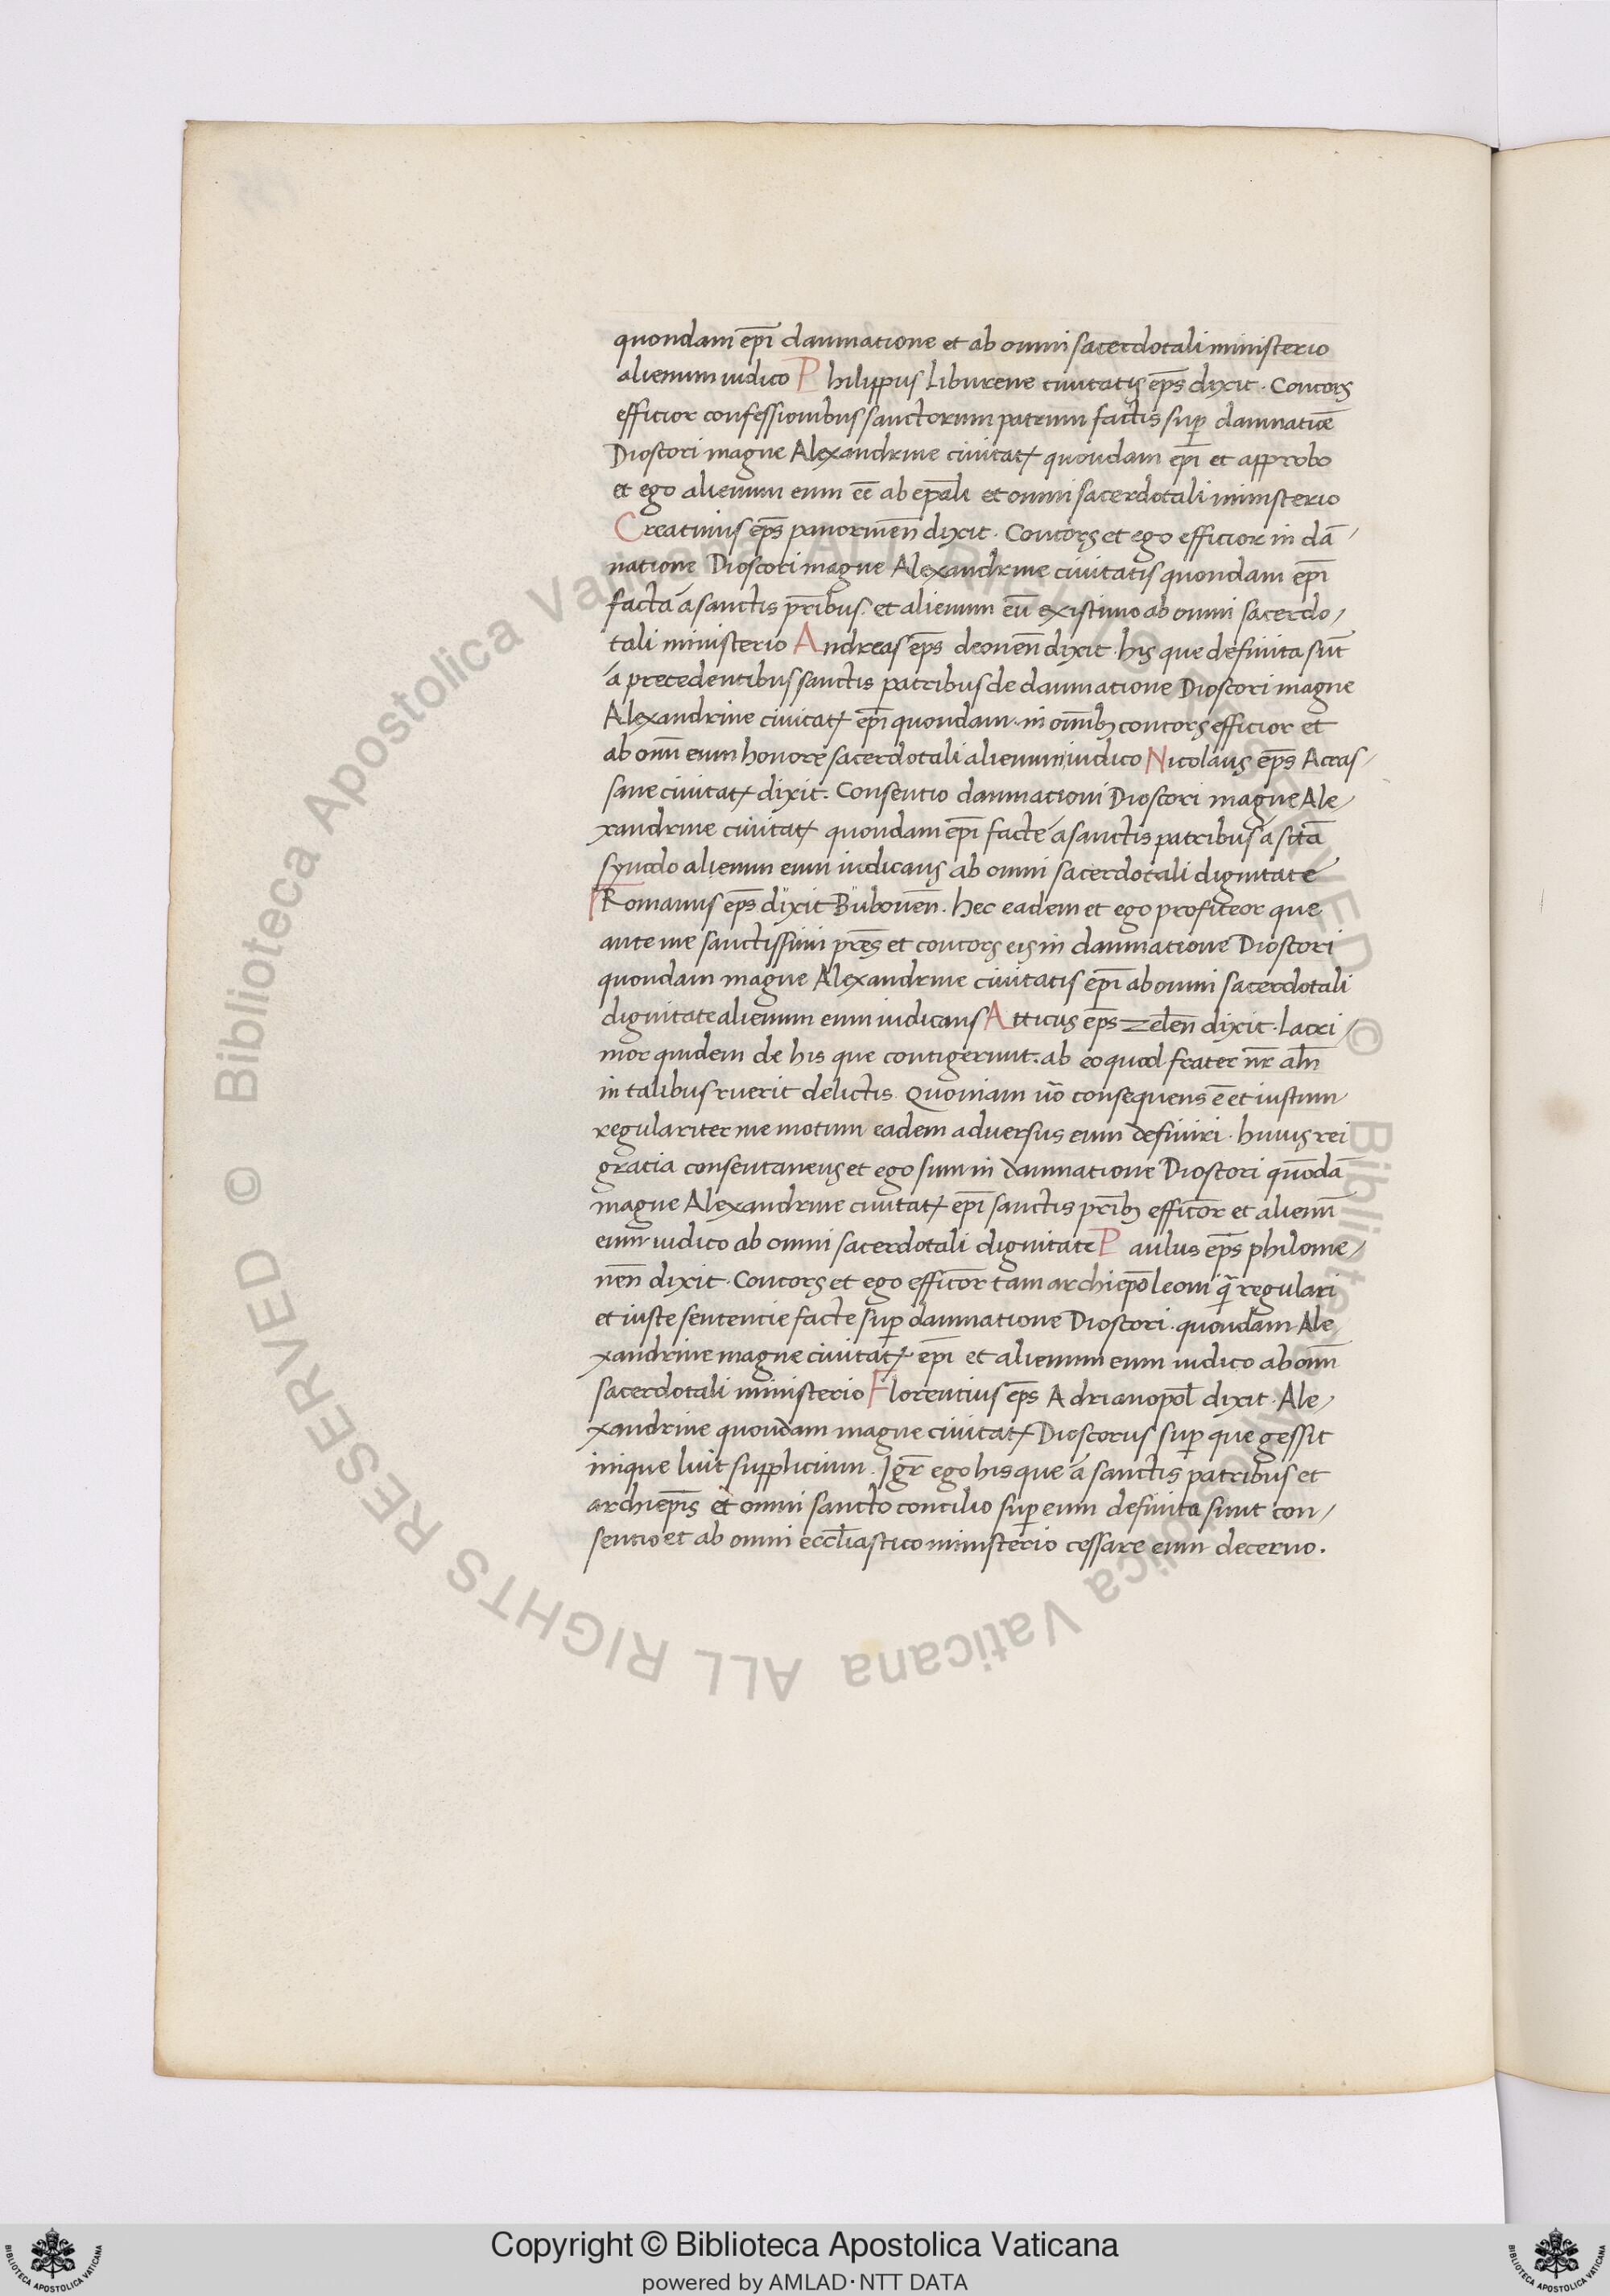 quondam ep̄i damnatione et ab omni sacerdotali ministerio
alienum iudico Philippus Liburene ciuitatis ep̄s dixit . Concors
efficior confessionibus sanctorum patrum factis sup̱ damnatiōe
Dioscori magne Alexandrine ciuitatꝭ quondam ep̄i et approbo
et ego alienum eum eē ab ep̄ali et omni sacerdotali ministerio
Creatinus ep̄s panormen̄ dixit . Concors et ego efficior in dā⸗
natione Dioscori magne Alexandrine ciuitatis quondam ep̄i
facta á sanctis pr̄ibus . et alienum eū existimo ab omni sacerdo⸗
tali ministerio Andreas ep̄s deonen̄ dixit . his que definita sūt
á precedentibus sanctis patribus de damnatione Dioscori magne
Alexandrine ciuitatꝭ ep̄i quondam . in om̄ibꝫ concors efficior et
ab om̄i eum honore sacerdotali alienum iudico Nicolaus ep̄s Acras⸗
sane ciuitatꝭ dixit . Consentio damnationi Dioscori magne Ale⸗
xandrine ciuitatꝭ quondam ep̄i facte á sanctis patribus á sc̄tā
synodo alienum eum iudicans ab omni sacerdotali dignitate
Romanus ep̄s dixit Bubonen̄ . hec eadem et ego profiteor que
ante me sanctissimi pr̄es et concors eis in damnatione Dioscori
quondam magne Alexandrine ciuitatis ep̄i ab omni sacerdotali
dignitate alienum eum iudicans Atticus ep̄s zelen̄ dixit . Lacri⸗
mor quidem de his que contigerunt . ab eo quod frater nr̄
in talibus ruerit delictis . Quoniam ūo consequens ē et iustum
regulariter me motum eadem aduersus eum definiri . huius rei
gratia consentaneus et ego sum in damnatione Dioscori quōdā
magne Alexandrine ciuitatꝭ ep̄i sanctis pr̄ibꝫ efficior et alienū
eum iudico ab omni sacerdotali dignitate Paulus ep̄s philome⸗
nen̄ dixit . Concors et ego efficior tam archiep̄o leoni q̄ regulari
et iuste sentencie facte sup̱ damnatione Dioscori . quondam Ale
xandrine magne ciuitatꝭ ep̄i et alienum eum iudico ab om̄i
sacerdotali ministerio Florentius ep̄s Adrianopol̄ dixit . Ale⸗
xandrine quondam magne ciuitatꝭ Dioscorus sup̱ que gessit
inique luit supplicium . Igr̄ ego his que á sanctis patribus et
archiep̄is et omni sancto concilio sup̱ eum definita sunt con⸗
sentio et ab omni eccl̄iastico ministerio cessare eum decerno .
© Biblioteca Apostolica Vaticana ALL RIGHTS RESERVED © Biblioteca Apostolica Vaticana ALL RIGHTS RESERVED
Copyright © Biblioteca Apostolica Vaticana
powered by AMLAD·NTT DATA
BIBLIOTECA APOSTOLICA VATICANA
BIBLIOTECA APOSTOLICA VATICANA